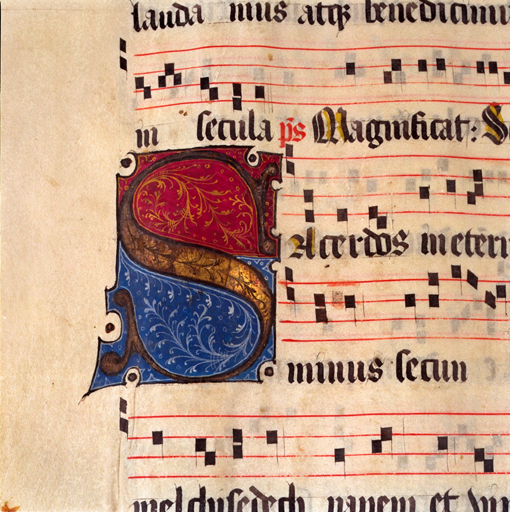 lauda mus atqȝ benedicimu
in secula ps Magnificat: S
Sacerdos in etern
minus secun
melchisedech panem et vin